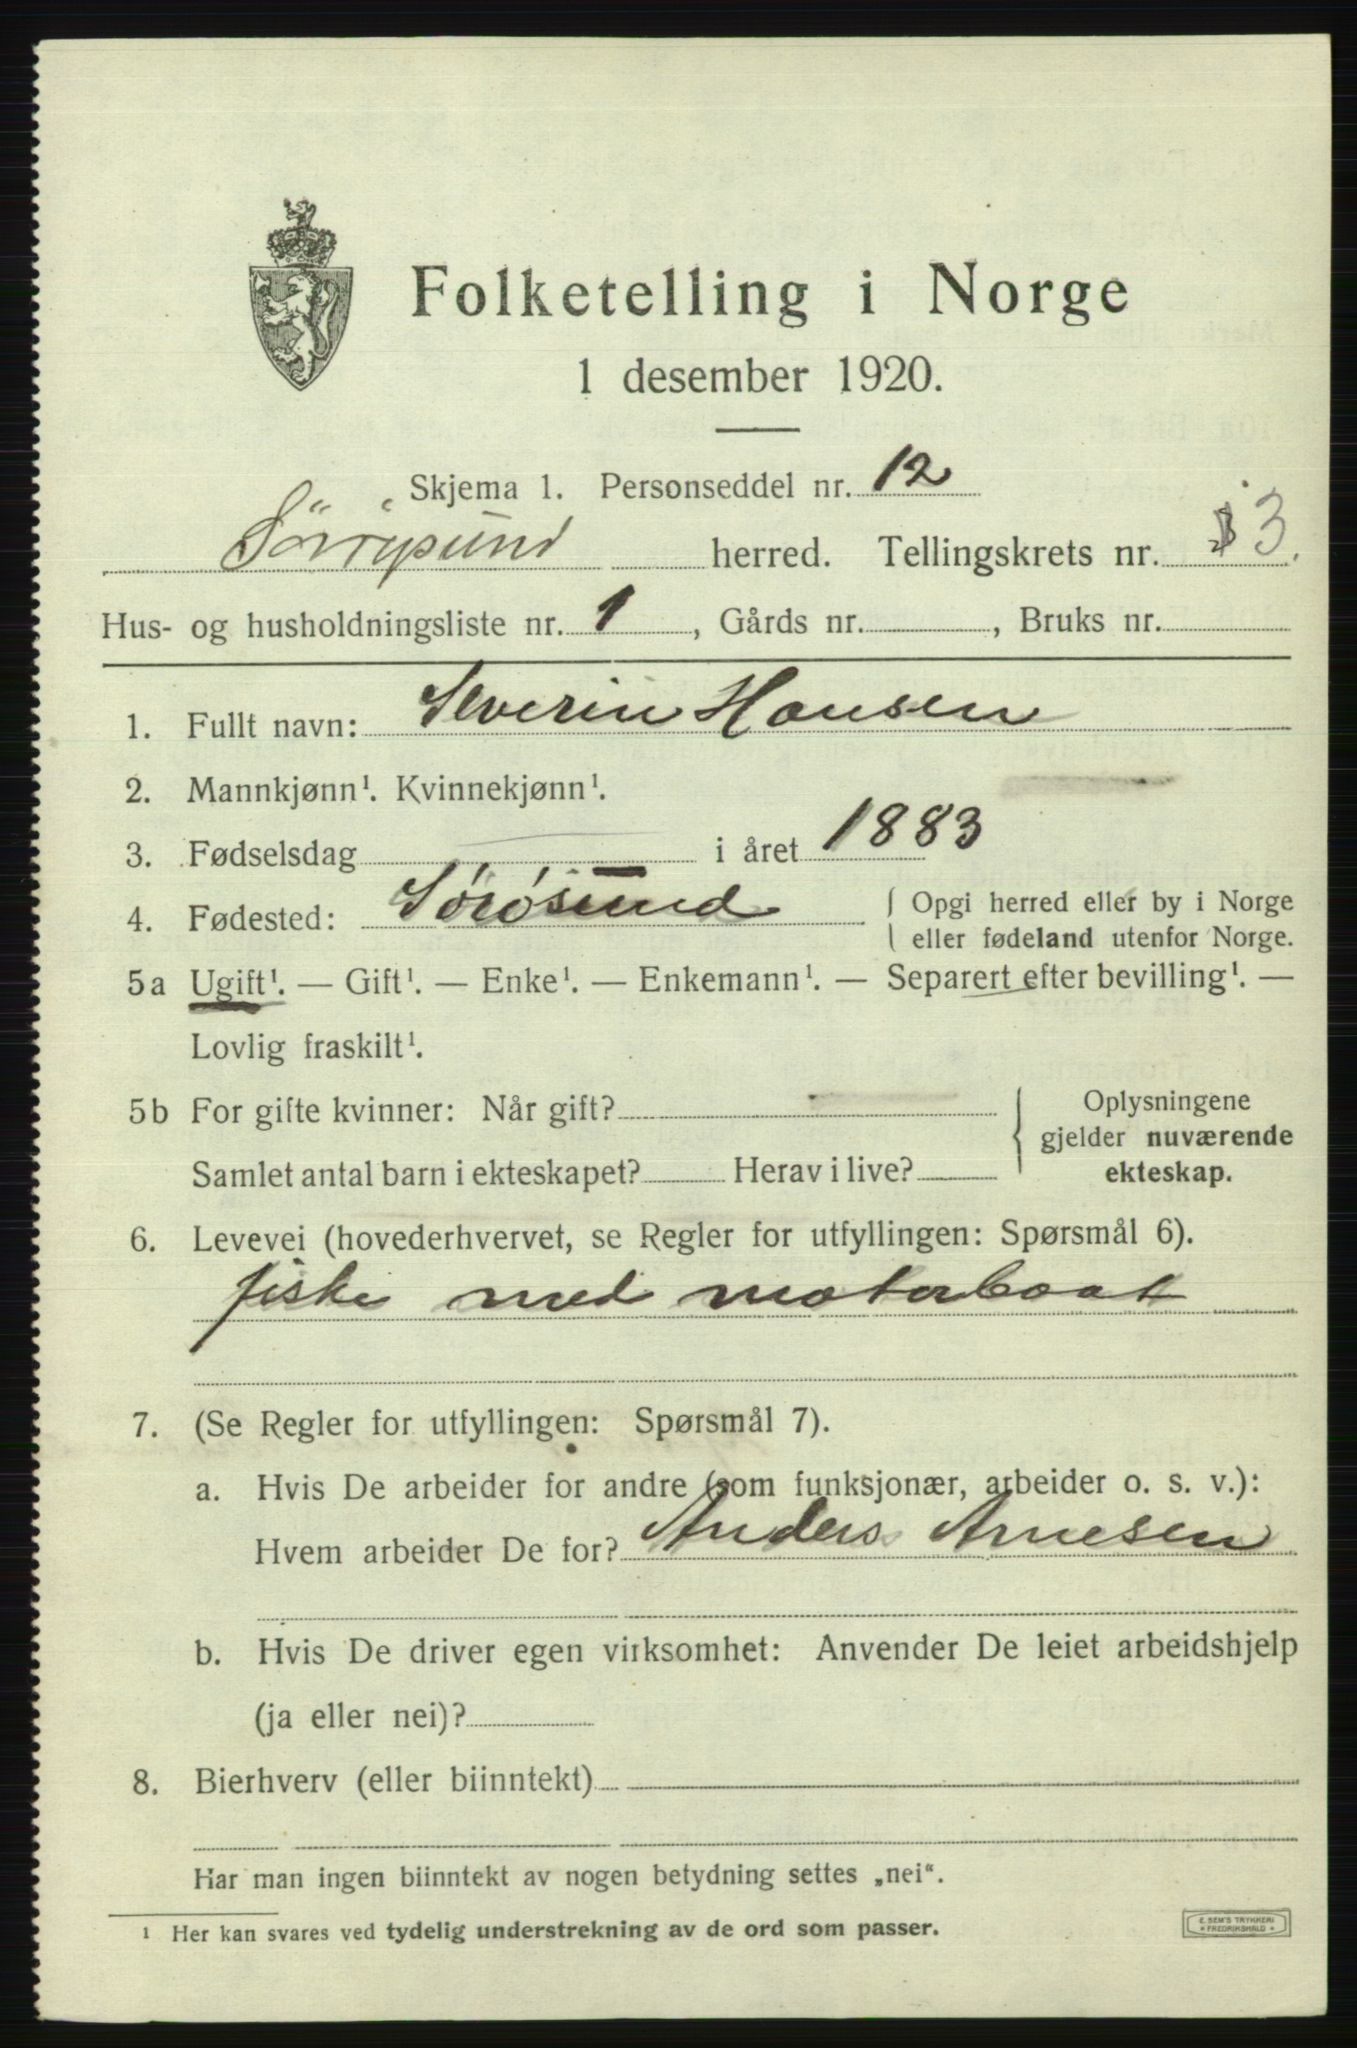 Folketelling i Norge
1 desember 1920.
Skjema 1. Personseddel nr. 12
herred. Tellingskrets nr. 3.
Hus- og husholdningsliste nr. 1, Gårds nr. , Bruks nr.
1. Fullt navn: Severin Hansen
2. Mannkjønn¹. Kvinnekjønn¹.
3. Fødselsdag i året 1883
4. Fødested: Sørøsund { Opgi herred eller by i Norge
eller fødeland utenfor Norge.
5a Ugift¹. — Gift¹. — Enke¹. — Enkemann¹. — Separert efter bevilling¹. —
Lovlig fraskilt¹.
5b For gifte kvinner: Når gift? Oplysningene
gjelder nuværende
Samlet antal barn i ekteskapet? Herav i live? ekteskap.
6. Levevei (hovederhvervet, se Regler for utfyllingen: Spørsmål 6).
fiske med motorbaat
7. (Se Regler for utfyllingen: Spørsmål 7).
a. Hvis De arbeider for andre (som funksjonær, arbeider o. s. v.):
Hvem arbeider De for? Anders Arnesen
b. Hvis De driver egen virksomhet: Anvender De leiet arbeidshjelp
(ja eller nei)?
8. Bierhverv (eller biinntekt)
Har man ingen biinntekt av nogen betydning settes „nei“.
¹ Her kan svares ved tydelig understrekning av de ord som passer.
E. SEM'S TRYKKERI
* FREDRIKSHALD *